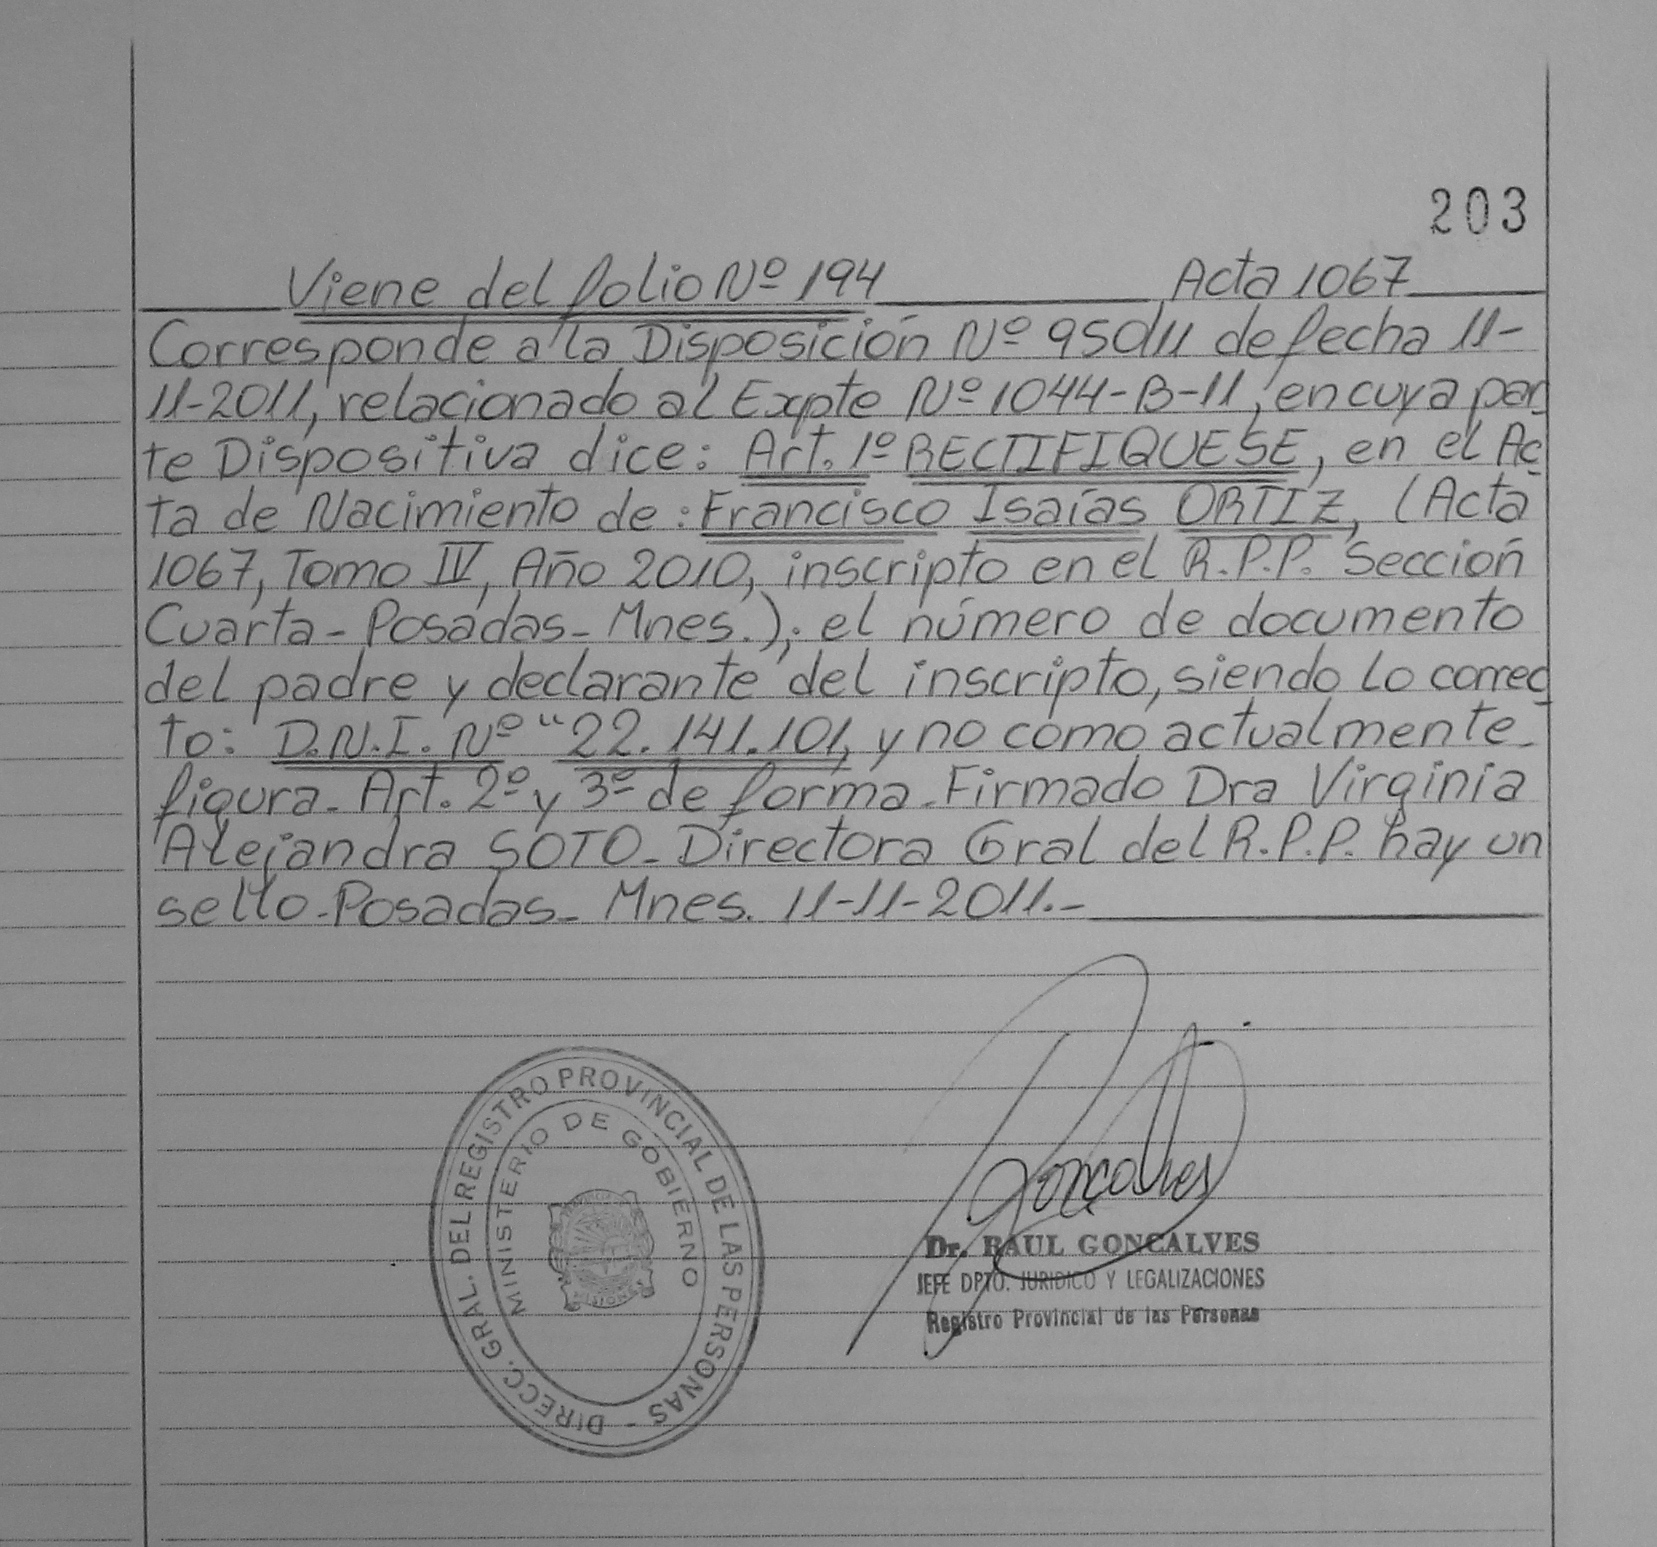 203
Viene del folio Nº 194 Acta 1067
Corresponde a la Disposición Nº 950/11 de fecha 11-
11-2011, relacionado al Expte Nº 1044-B-11, en cuya par
te Dispositiva dice: Art. 1º RECTIFIQUESE, en el Ac
ta de Nacimiento de: Francisco Isaías ORTIZ, (Acta
1067, Tomo IV, Año 2010, inscripto en el R.P.P. Sección
Cuarta - Posadas - Mnes.); el número de documento
del padre y declarante del inscripto, siendo lo correc
to: D.N.I. Nº "22.141.101, y no como actualmente
figura - Art. 2º y 3º de forma - Firmado Dra Virginia
Alejandra SOTO - Directora Gral del R.P.P. hay un
sello - Posadas - Mnes. 11-11-2011.-
DIRECC. GRAL. DEL REGISTRO PROVINCIAL DE LAS PERSONAS -
MINISTERIO DE GOBIERNO
Gonçalves
Dr. RAUL GONCALVES
JEFE DPTO. JURIDICO Y LEGALIZACIONES
Registro Provincial de las Personas